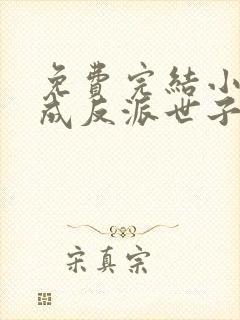 免費完結小
成反派世子
宋真宗